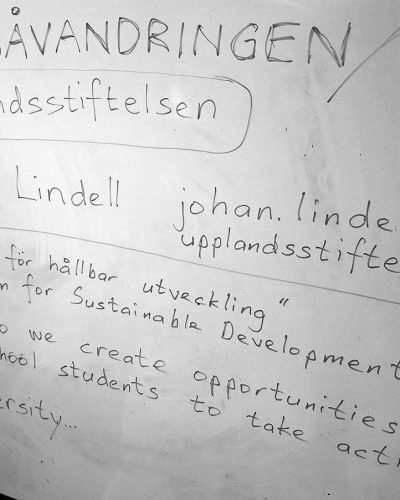 ÅVANDRINGEN
dsstiftelsen
Lindell johan.linde
upplandsstifte
för hållbar utveckling"
for Sustainable Development
we create opportunities
students to take acti
ersity...